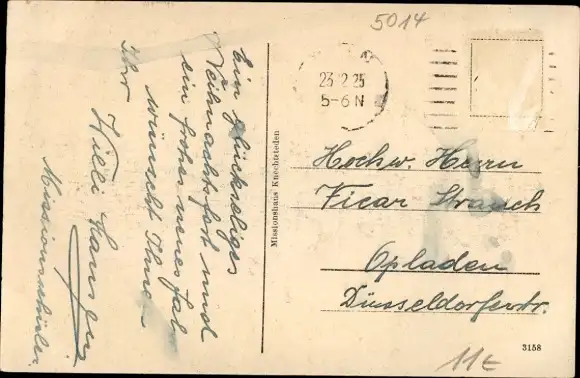 5014
23 12 25
5-6 N
Ein glückseliges
Weihnachtsfest und
ein frohes neues Jahr
wünscht Ihnen
Ihr
Willi Hansen
Missionsschüler.
Missionshaus Knechtsteden
Hochw. Herrn
Vicar Strauch
Opladen
Düsseldorferstr.
3158
11E